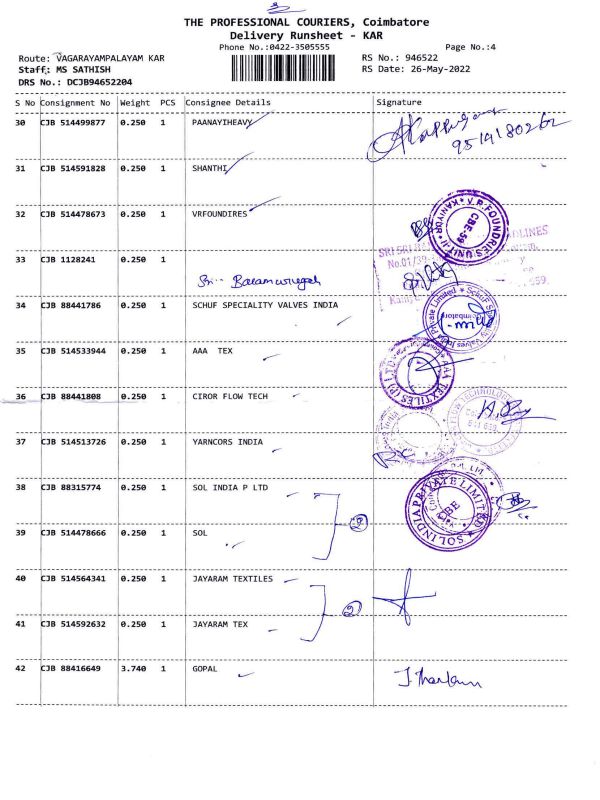 THE PROFESSIONAL COURIERS, Coimbatore
Delivery Runsheet - KAR
Phone No.:0422-3505555 Page No.:4
Route: VAGARAYAMPALAYAM KAR RS No.: 946522
Staff: MS SATHISH RS Date: 26-May-2022
DRS No.: DCJB94652204
S No Consignment No Weight PCS Consignee Details Signature
30 CJB 514499877 0.250 1 PAANAYIHEAVY
31 CJB 514591828 0.250 1 SHANTHI
32 CJB 514478673 0.250 1 VRFOUNDIRES
V.R.FOUNDRIES UNIT-II KANIYUR CBE-59
33 CJB 1128241 0.250 1
34 CJB 88441786 0.250 1 SCHUF SPECIALITY VALVES INDIA
35 CJB 514533944 0.250 1 AAA TEX
AAA TEXTILES (P) LTD
36 CJB 88441808 0.250 1 CIROR FLOW TECH
37 CJB 514513726 0.250 1 YARNCORS INDIA
38 CJB 88315774 0.250 1 SOL INDIA P LTD
SOL INDIA PRIVATE LIMITED CBE
39 CJB 514478666 0.250 1 SOL
40 CJB 514564341 0.250 1 JAYARAM TEXTILES
41 CJB 514592632 0.250 1 JAYARAM TEX
42 CJB 88416649 3.740 1 GOPAL